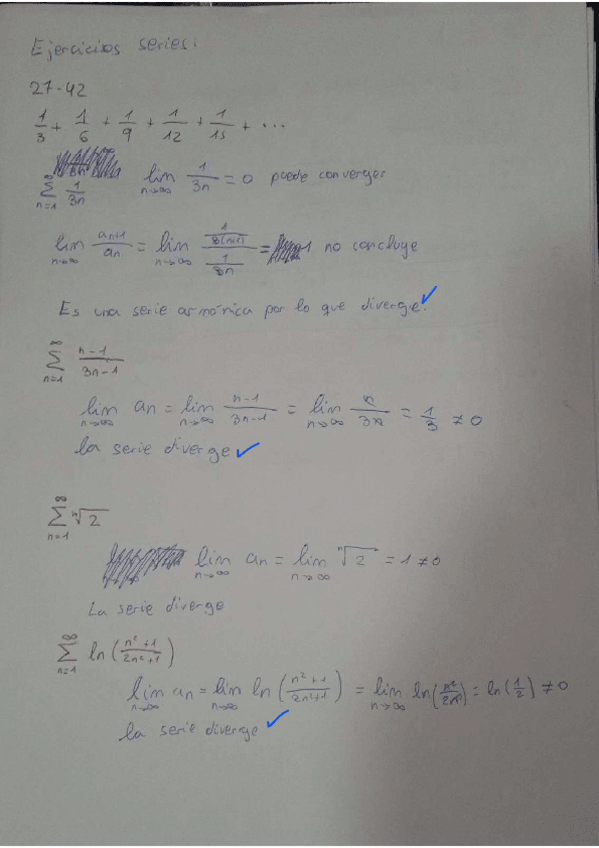 Ejercicios series:
27-42
1/3 + 1/6 + 1/9 + 1/12 + 1/15 + ...
∑_{n=1}^{∞} 1/3n lim_{n→∞} 1/3n = 0 puede converger
lim_{n→∞} an+1/an = lim_{n→∞} (1/8(n+1))/(1/8n) = 1 no concluye
Es una serie armónica por lo que diverge. ✓
∑_{n=1}^{∞} n-1/3n-1
lim_{n→∞} an = lim_{n→∞} n-1/3n-1 = lim_{n→∞} n/3n = 1/3 ≠ 0
la serie diverge ✓
∑_{n=1}^{∞} ⁿ√2
lim_{n→∞} an = lim_{n→∞} ⁿ√2 = 1 ≠ 0
La serie diverge
∑_{n=1}^{∞} ln(n²+1/2n²+1)
lim_{n→∞} an = lim_{n→∞} ln(n²+1/2n²+1) = lim_{n→∞} ln(n²/2n²) = ln(1/2) ≠ 0
la serie diverge ✓